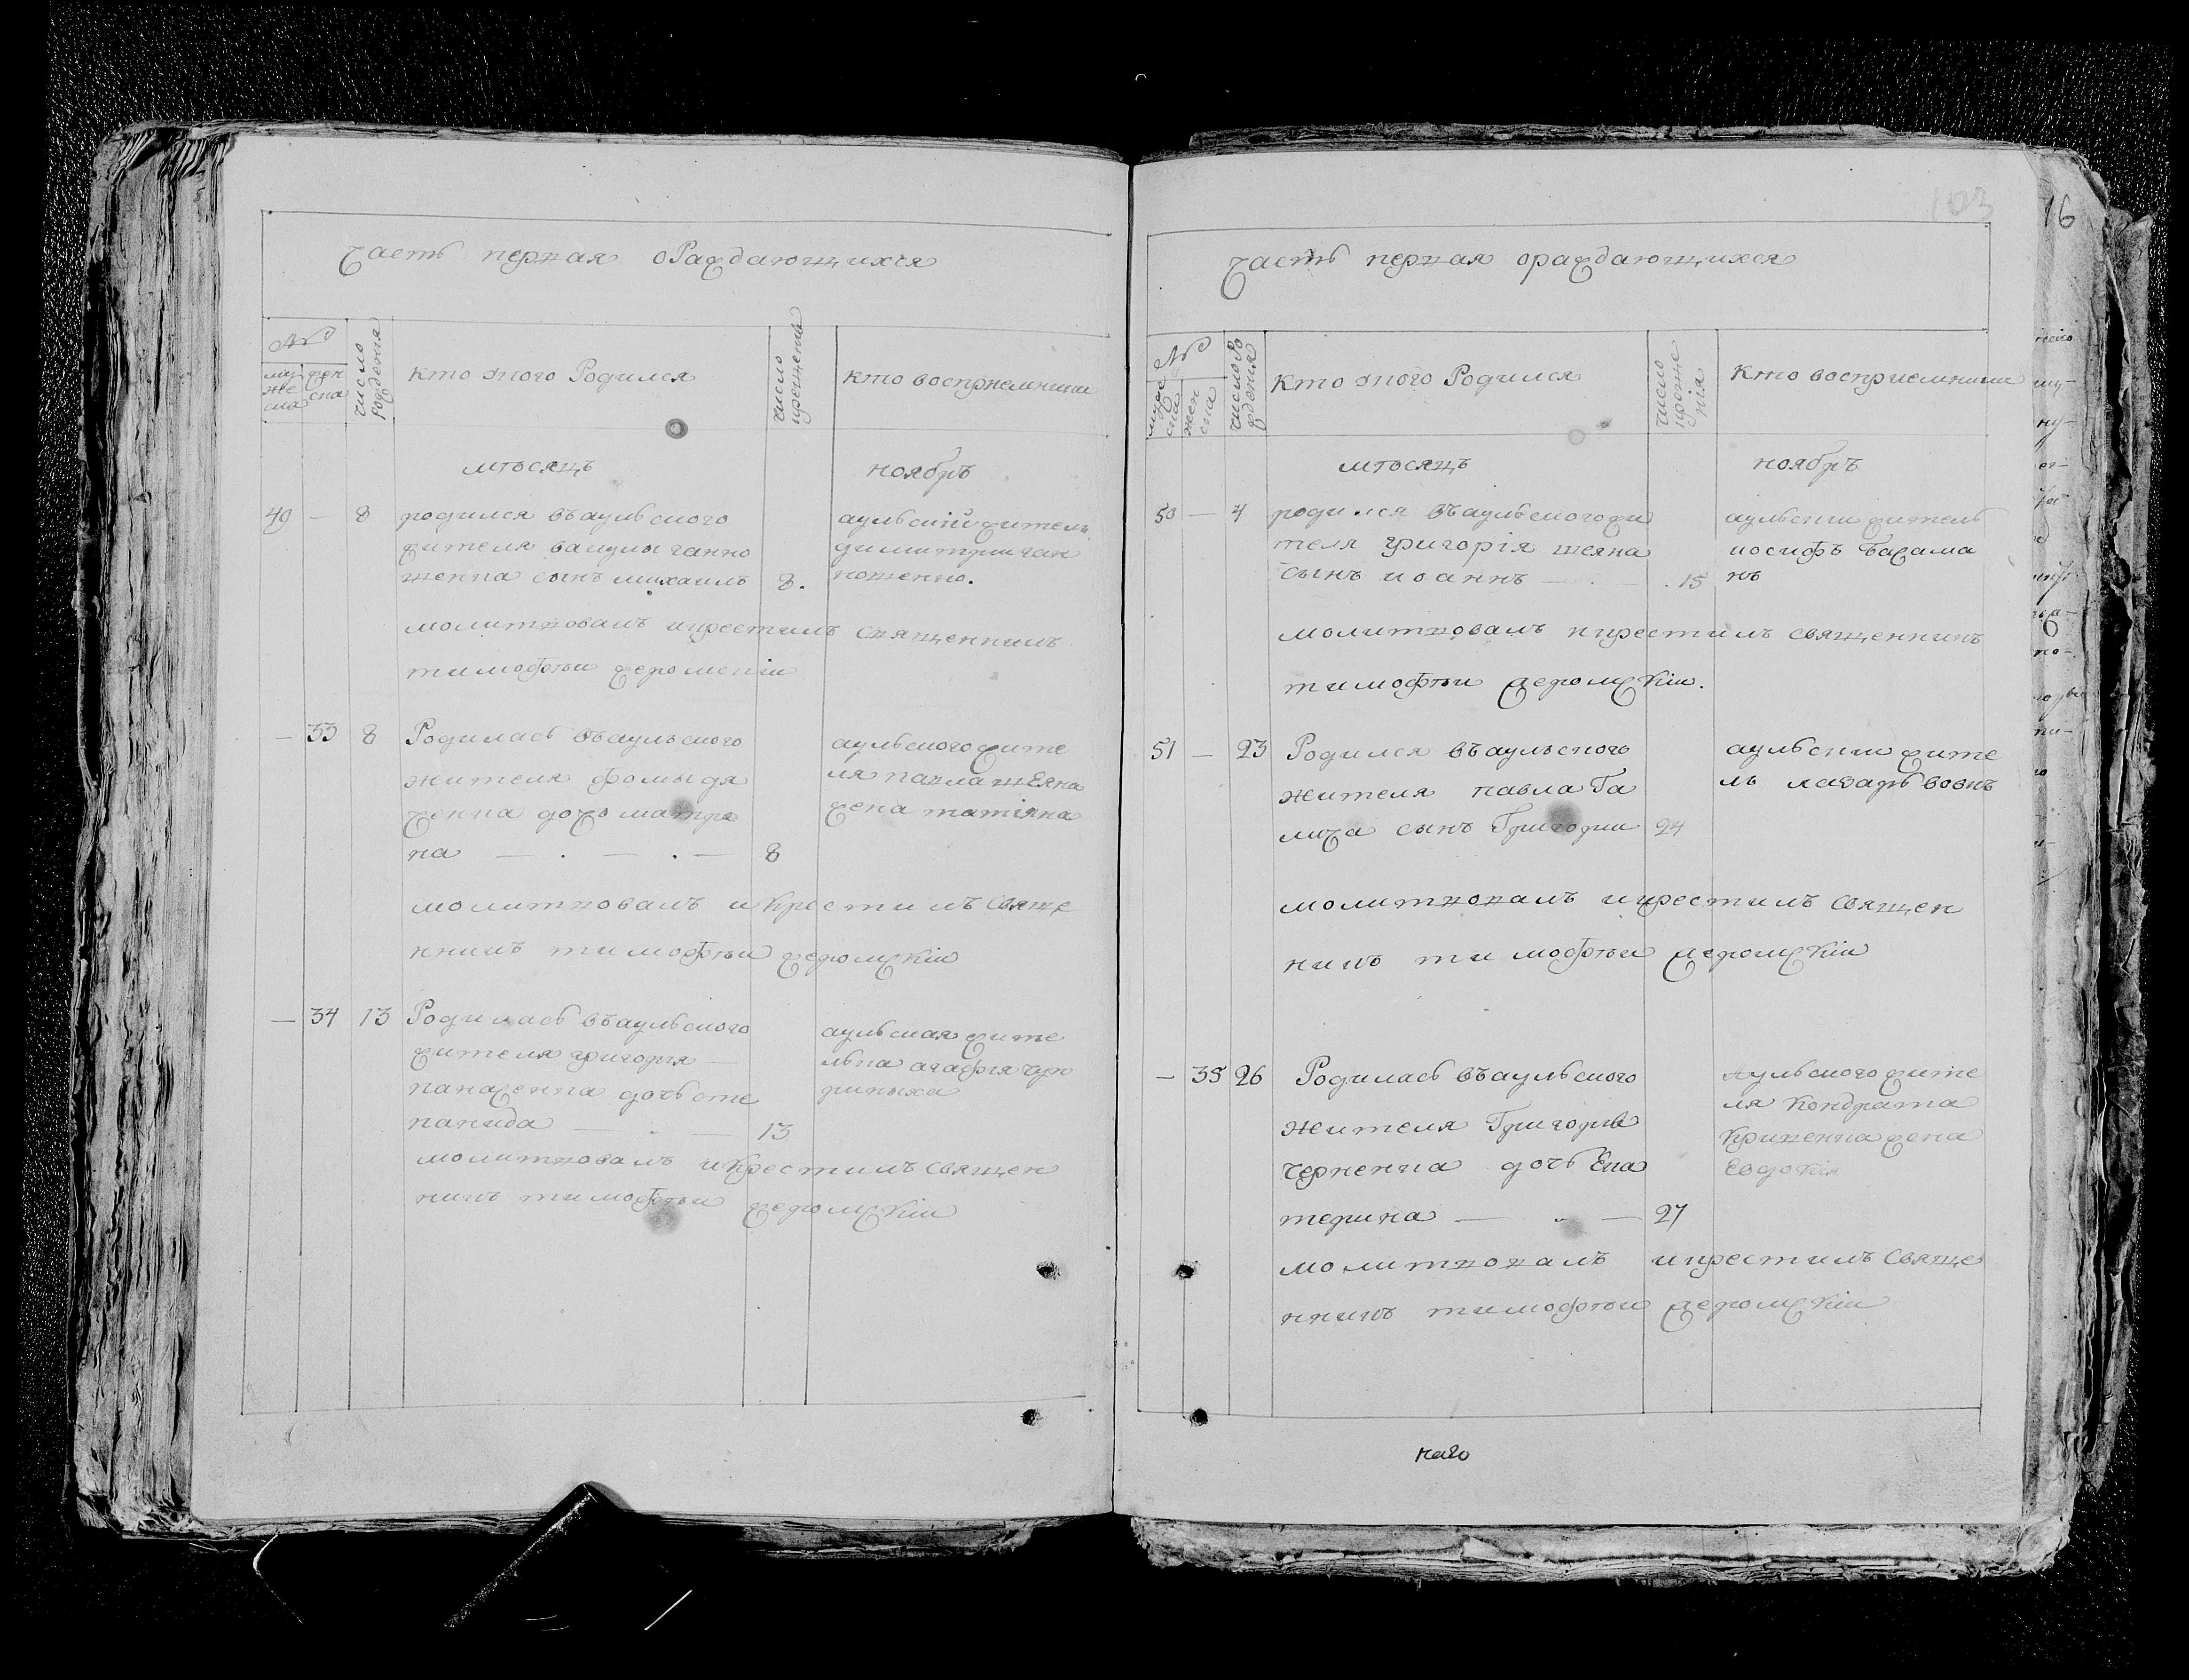 Часть первая оРаждающихся
№
муже
ска
жен
ска
число
рожденія
кто укого Родился
число
крещенія
кто восприемники
мѣсяцъ
ноябрь
49 — 8 родился въаульского
жителя
ченка сынъ михаилъ 8.
аульскій житель
димитрии ган
ноженко.
молитвовалъ икрестилъ священникъ
тимофѣи жеромскіи
— 33 8 Родилась въаульского
жителя фомы дя
ченка дочь матро
на — . — . — 8
аульского жите
ля павла шеяна
жена татіяна
молитвовалъ и крестилъ свяще
нникъ тимофѣи жеромскіи
— 34 13 Родилась въаульского
жителя григорія —
панаженка дочь сте
панида — . — 13
аульская жите
лька агафія
молитвовалъ икрестилъ священ
никъ тимофѣи жеромскіи
103
16
часть первая ораждающихся
№
муже
ска
жен
ска
число Ро
жденія
кто укого Родился
число
креще
нія
кто восприемники
мѣсяцъ
ноябрь
50 — 4 родился въаульского жи
теля григорія шеяна
сынъ иоаннъ — . 15
аульскии житель
иосифъ Бажама
нъ
молитвовалъ крестилъ священникъ
тимофѣи жеромскіи.
51 — 23 Родился въаульского
жителя павла Га
лича сынъ Григории 24
аульскии жите
ль лазарь вовкъ
молитвовалъ икрестилъ священ
никъ тимофѣи жеромскіи
— 35 26 Родилась въаульского
жителя Григорія
черненка дочь Ека
терина — . — 27
аульского жите
ля Кондрата
Кривенка жена
Евдокія
молитвовалъ икрестилъ Свяще
нникъ тимофѣи жеромскіи